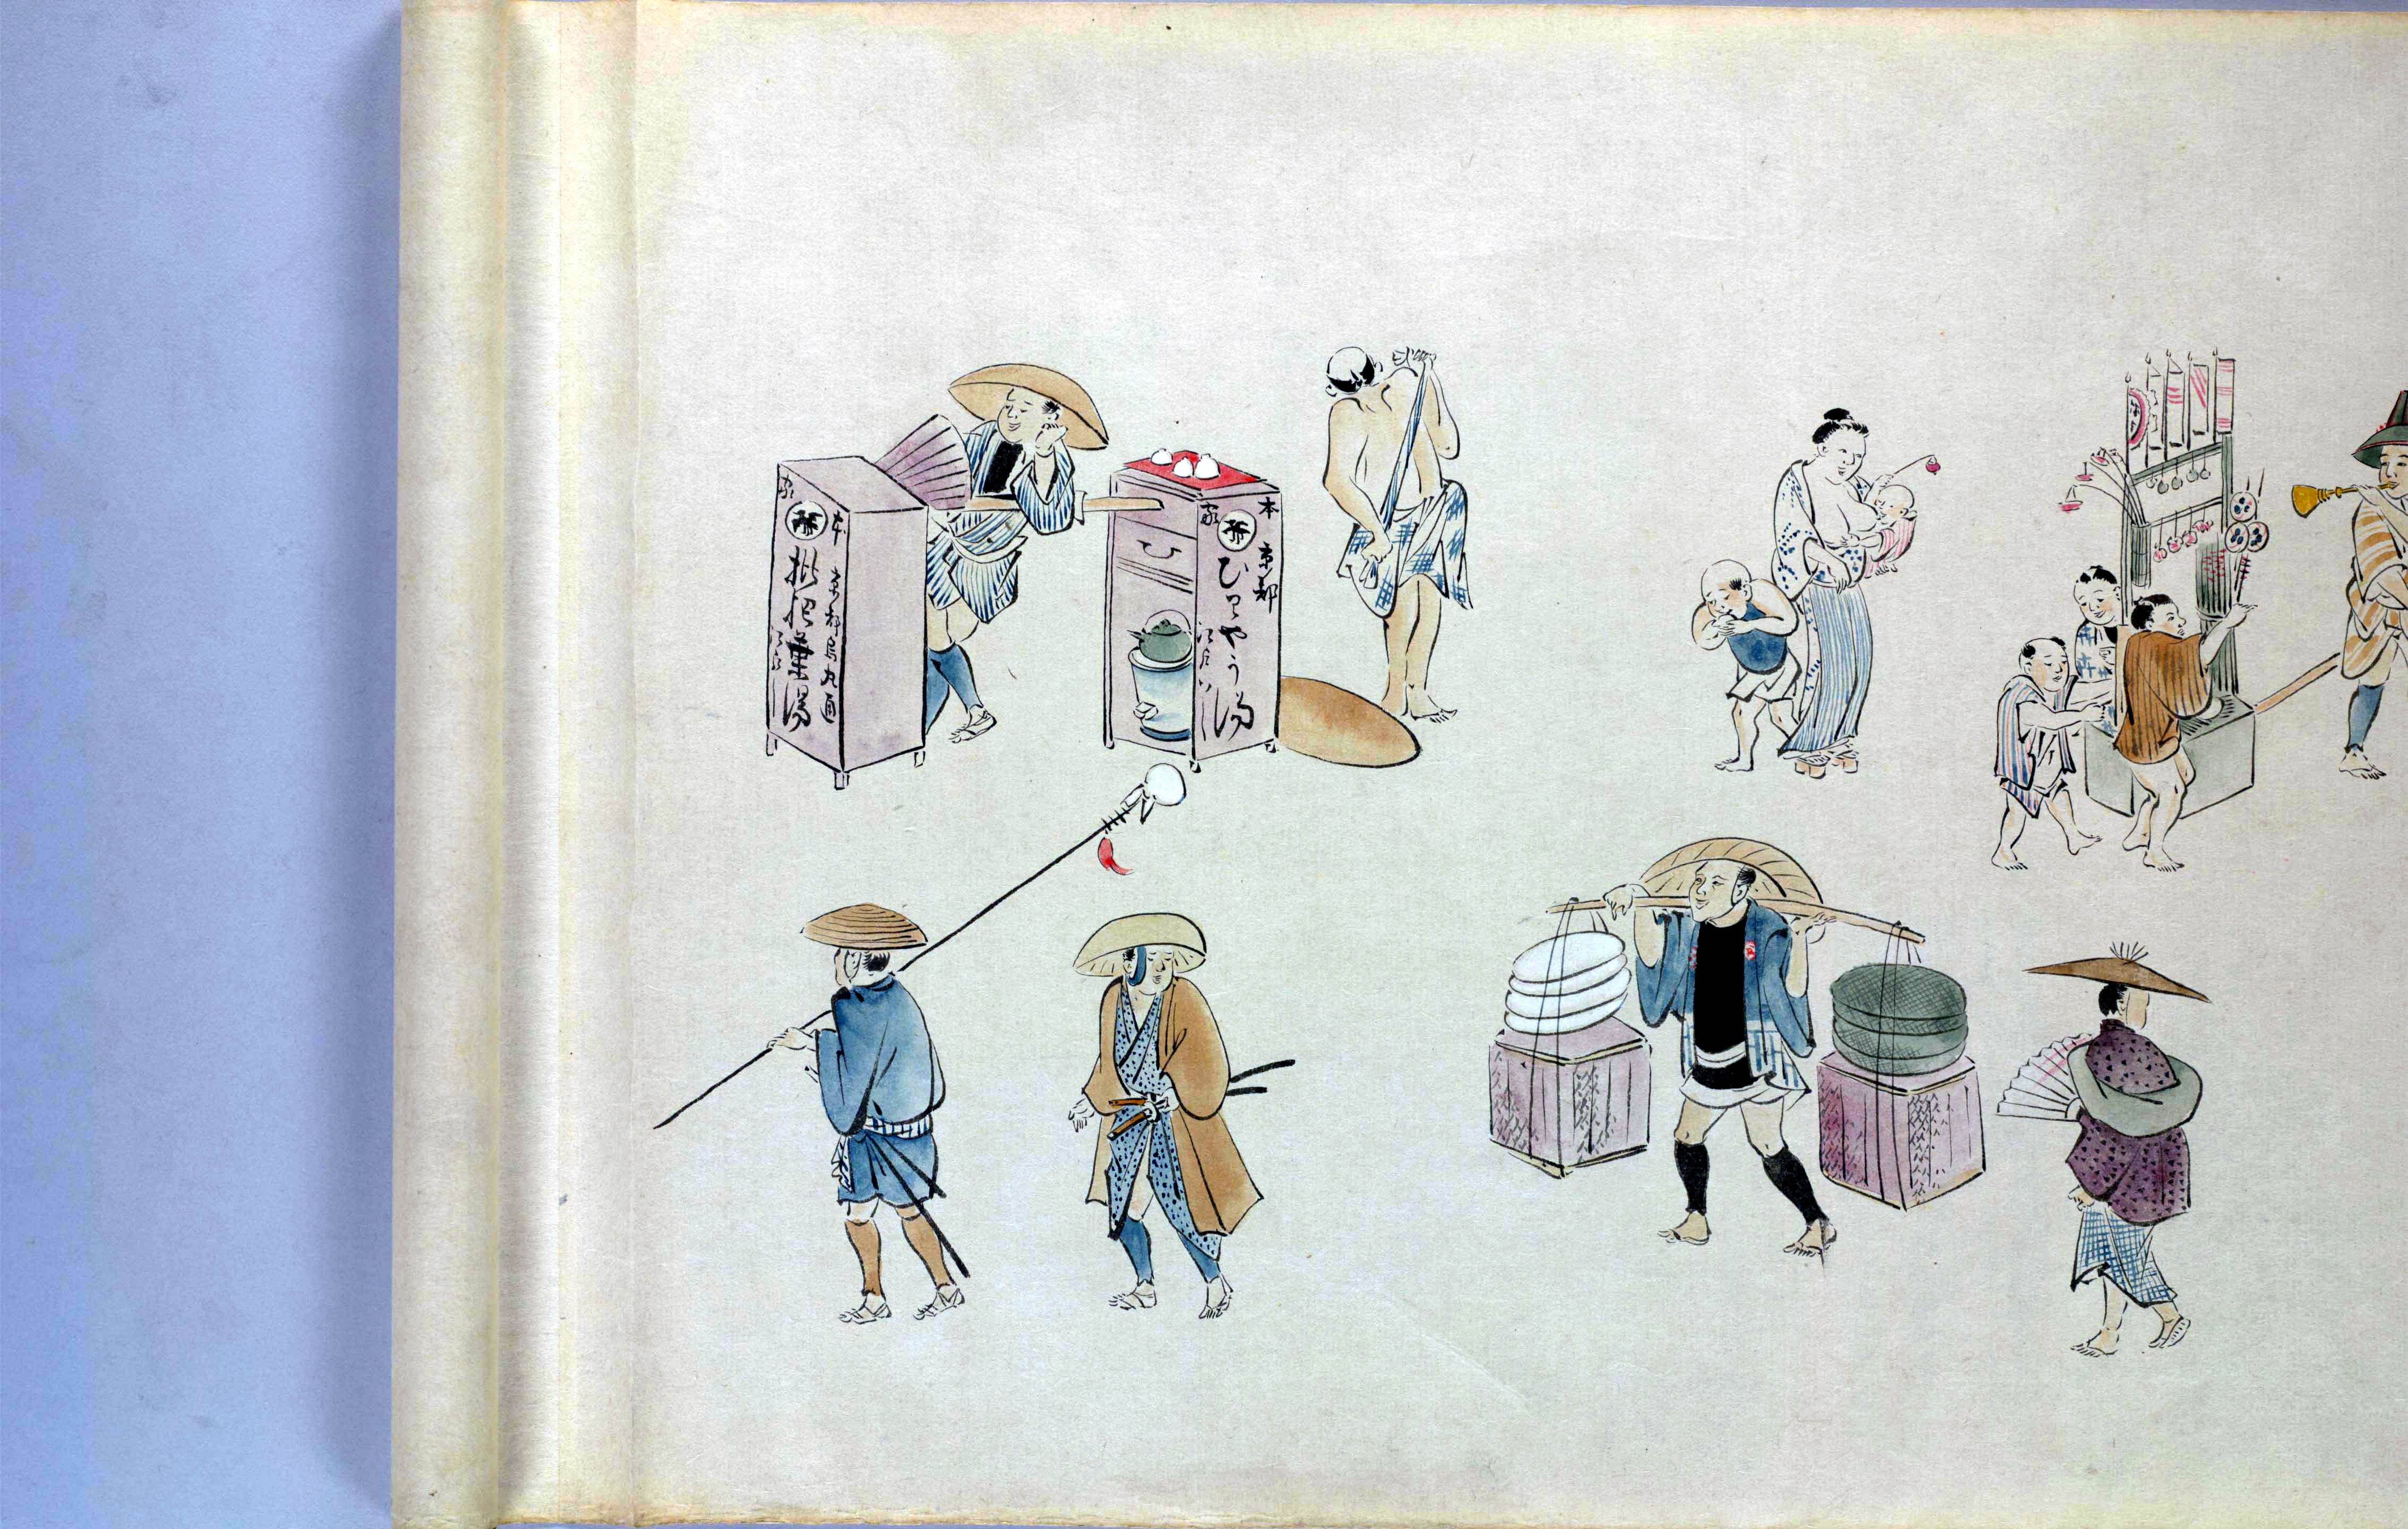 本家
京都
ひわやう湯
本家
京都烏丸
枇杷葉湯